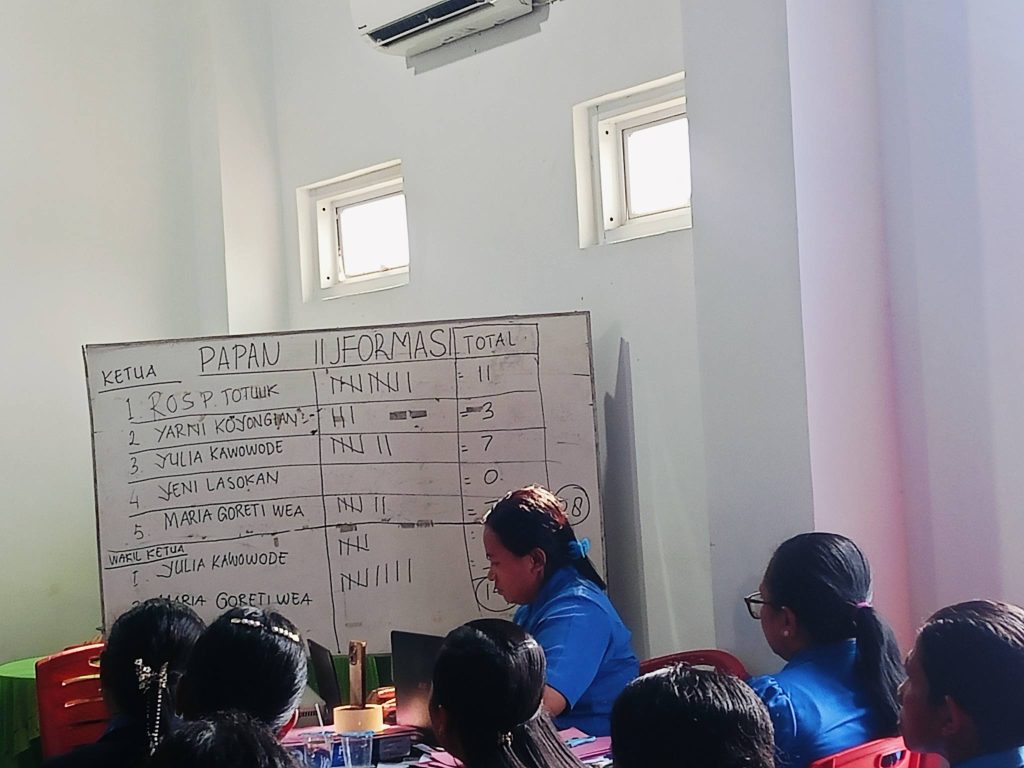 KETUA PAPAN IIJFORMASI TOTAL
1. ROS P. TOTUUK = 11
2 YARNI KOYONGIAN = 3
3. YULIA KAWOWODE = 7
4 YENI LASOKAN = 0
5 MARIA GORETI WEA =
WAKIL KETUA
1. YULIA KAWOWODE
MARIA GORETI WEA